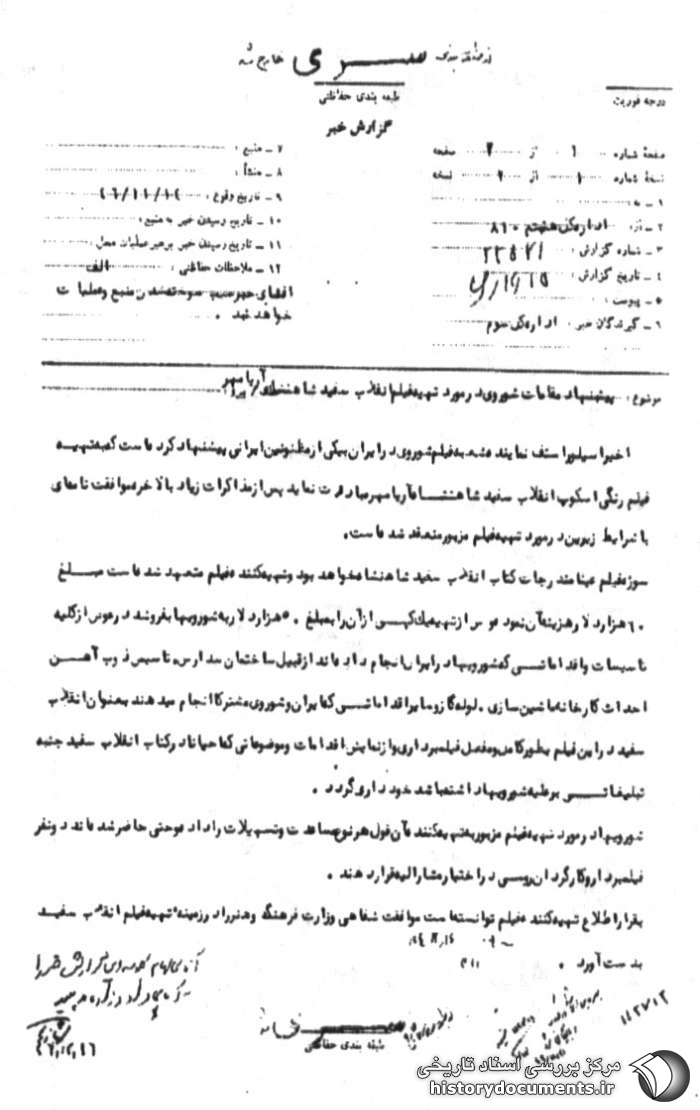 از طبقه بندی سری خارج شد
طبقه بندی حفاظتی
درجه فوریت
گزارش خبر
صفحهٔ شماره ۱ از ۲ صفحه
نسخهٔ شماره ۱ از ۲ نسخه
۱ ـ به :
۲ ـ از : اداره‌کل هشتم ۸۱۰
۳ ـ شماره گزارش : ۲۲۵۲۱
۴ ـ تاریخ گزارش :
۵ ـ پیوست :
۶ ـ گیرندگان خبر : اداره‌کل سوم
۷ ـ منبع :
۸ ـ منشأ :
۹ ـ تاریخ وقوع : ۴۶/۱۱/۱۴
۱۰ ـ تاریخ رسیدن خبر به منبع :
۱۱ ـ تاریخ رسیدن خبر برهبر عملیات محل :
۱۲ ـ ملاحظات حفاظتی : الف
افشای خبر سبب سوخته‌شدن منبع و عملیات
خواهد شد .
موضوع : پیشنهاد مقامات شوروی در مورد تهیه فیلم انقلاب سفید شاهنشاه آریامهر
اخیرا سیلوراستف نماینده عمده فیلم شوروی در ایران بیکی از مظنونین ایرانی پیشنهاد کرده است که به تهیه
فیلم رنگی اسکوپ انقلاب سفید شاهنشاه آریامهر مبادرت نماید پس از مذاکرات زیاد بالاخره موافقت نامه‌ای
با شرایط زیر بین در مورد تهیه فیلم مزبور منعقد شده است .
سوژه فیلم عینا مندرجات کتاب انقلاب سفید شاهنشاه خواهد بود و تهیه کننده فیلم متعهد شده است مبلغ
۶۰ هزار دلار هزینه آن نموده و پس از تهیه یک کپی از آن را بمبلغ ۵۰ هزار دلار به شورویها بفروشد در عوض از کلیه
تاسیسات و اقداماتی که شورویها در ایران انجام داده‌اند از قبیل ساختمان مدارس، تاسیس ذوب آهن
احداث کارخانه ماشین سازی ، لوله گاز و سایر اقداماتی که ایران و شوروی مشترکا انجام میدهند بعنوان انقلاب
سفید در این فیلم بطور کامل و مفصل فیلمبرداری و از نمایش اقدامات و موضوعاتی که احیانا در کتاب انقلاب سفید جنبه
تبلیغاتی بر علیه شورویها داشته باشد خودداری گردد .
شورویها در مورد تهیه فیلم مزبور به تهیه کننده آن قول هر نوع مساعدت و تسهیلات را داده و حتی حاضر شده‌اند دو نفر
فیلمبردار و کارگردان روسی در اختیار مشارالیه قرار دهند .
بقرار اطلاع تهیه کننده فیلم توانسته است موافقت شفاهی وزارت فرهنگ و هنر را در زمینه تهیه فیلم انقلاب سفید
بدست آورد .
طبقه بندی حفاظتی
۱۱۲۷۱۲
مرکز بررسی اسناد تاریخی
historydocuments.ir